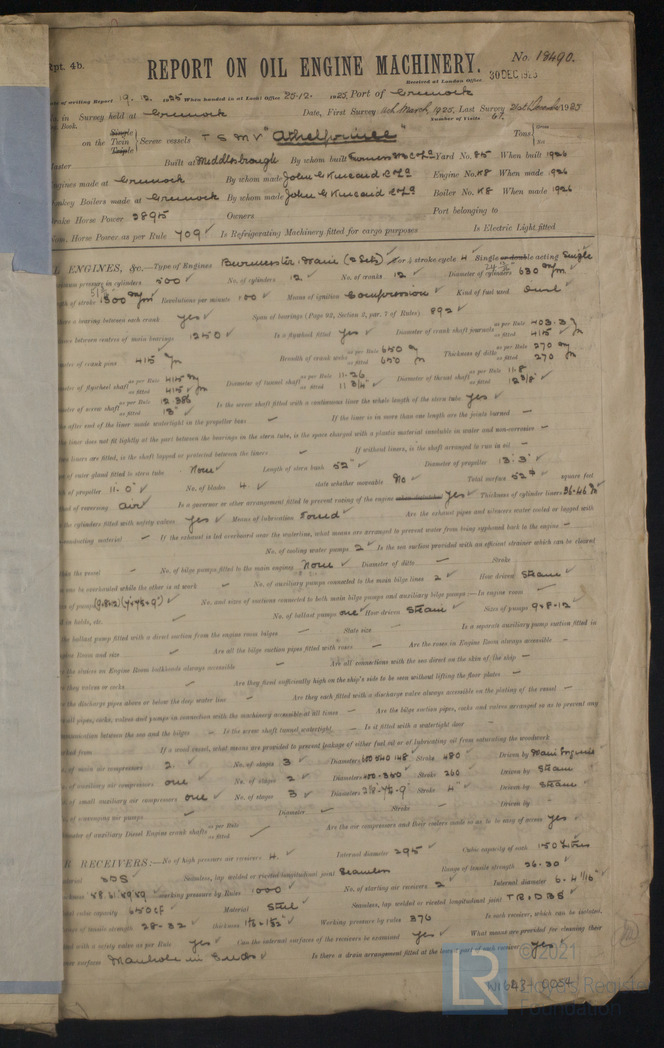 Rpt. 4b.
REPORT ON OIL ENGINE MACHINERY.
No. 18490.
Received at London Office 30 DEC 1925
of writing Report 19.12.1925 When handed in at Local Office 25-12-1925 Port of Greenock
in Survey held at Greenock Date, First Survey March 1925, Last Survey 1925
Book. Number of Visits 67
on the Single Twin Triple Screw vessels T S M V "Athelprince" Tons Gross Net
Master Built at Middlesbrough By whom built Yard No. 85 When built 1926
Engines made at Greenock By whom made John G Kincaid & Co Ld Engine No. K8 When made 1926
Donkey Boilers made at Greenock By whom made John G Kincaid & Co Ld Boiler No. K8 When made 1926
Brake Horse Power 2895 Owners Port belonging to
Horse Power as per Rule 709 Is Refrigerating Machinery fitted for cargo purposes Is Electric Light fitted
ENGINES, &c.—Type of Engines Burmeister Wain (2 Sets) or 4 stroke cycle 4 Single or double acting Single
pressure in cylinders 500 No. of cylinders 12 No. of cranks 12 Diameter of cylinders 630 m/m
of stroke 1300 m/m Revolutions per minute Means of ignition Compression Kind of fuel used
a bearing between each crank yes Span of bearings (Page 92, Section 2, par. 7 of Rules) 892
between centres of main bearings 1250 Is a flywheel fitted yes Diameter of crank shaft journals as per Rule 403.3 as fitted 415
of crank pins 415 Breadth of crank webs as per Rule 650 as fitted 650 Thickness of ditto as per Rule 270 as fitted 270
of flywheel shaft as per Rule 415 as fitted 415 Diameter of tunnel shaft as per Rule 11.26 as fitted 11 3/4" Diameter of thrust shaft as per Rule 11.8 as fitted 12 3/8"
of screw shaft as per Rule 12.386 as fitted 13" Is the screw shaft fitted with a continuous liner the whole length of the stern tube yes
the after end of the liner made watertight in the propeller boss — If the liner is in more than one length are the joints burned —
the liner does not fit tightly at the part between the bearings in the stern tube, is the space charged with a plastic material insoluble in water and non-corrosive —
two liners are fitted, is the shaft lapped or protected between the liners — If without liners, is the shaft arranged to run in oil —
of outer gland fitted to stern tube None Length of stern bush 52" Diameter of propeller 13'.3"
of propeller 11'.0" No. of blades 4 state whether moveable No Total surface 52 square feet
of reversing air Is a governor or other arrangement fitted to prevent racing of the engine yes Thickness of cylinder liners 36-46
the cylinders fitted with safety valves yes Means of lubrication Forced Are the exhaust pipes and silencers water cooled or lagged with
conducting material — If the exhaust is led overboard near the waterline, what means are arranged to prevent water from being syphoned back to the engine —
No. of cooling water pumps 2 Is the sea suction provided with an efficient strainer which can be cleared
the vessel — No. of bilge pumps fitted to the main engines None Diameter of ditto — Stroke —
can be overhauled while the other is at work — No. of auxiliary pumps connected to the main bilge lines 2 How driven Steam
of pumps No. and sizes of suctions connected to both main bilge pumps and auxiliary bilge pumps:—In engine room —
in holds, etc. — No. of ballast pumps one How driven Steam Sizes of pumps 9×8×12
the ballast pump fitted with a direct suction from the engine room bilges — State size — Is a separate auxiliary pump suction fitted in
Room and size — Are all the bilge suction pipes fitted with roses — Are the roses in Engine Room always accessible —
the sluices on Engine Room bulkheads always accessible — Are all connections with the sea direct on the skin of the ship —
they valves or cocks — Are they fixed sufficiently high on the ship's side to be seen without lifting the floor plates —
the discharge pipes above or below the deep water line — Are they each fitted with a discharge valve always accessible on the plating of the vessel —
all pipes, cocks, valves and pumps in connection with the machinery accessible at all times — Are the bilge suction pipes, cocks and valves arranged so as to prevent any
communication between the sea and the bilges — Is the screw shaft tunnel watertight — Is it fitted with a watertight door —
worked from If a wood vessel, what means are provided to prevent leakage of either fuel oil or of lubricating oil from saturating the woodwork
of main air compressors 2 No. of stages 3 Diameters Stroke 480 Driven by Main Engines
of auxiliary air compressors one No. of stages 2 Diameters Stroke 260 Driven by Steam
of small auxiliary air compressors one No. of stages 3 Diameters Stroke 4" Driven by Steam
of scavenging air pumps — Diameter — Stroke — Driven by —
of auxiliary Diesel Engine crank shafts as per Rule as fitted — Are the air compressors and their coolers made so as to be easy of access yes
RECEIVERS:—No. of high pressure air receivers 4 Internal diameter 295 Cubic capacity of each 150 litres
material SDS Seamless, lap welded or riveted longitudinal joint Seamless Range of tensile strength 26-30
working pressure by Rules 1000 No. of starting air receivers 2 Internal diameter 6.4 1/16"
cubic capacity 650 cf Material Steel Seamless, lap welded or riveted longitudinal joint T R. D B S
of tensile strength 28-32 thickness Working pressure by rules 376 Is each receiver, which can be isolated,
with a safety valve as per Rule yes Can the internal surfaces of the receivers be examined yes What means are provided for cleaning their
surfaces Manhole in Ends Is there a drain arrangement fitted at the lowest part of each receiver yes
LR
© 2021
Lloyd's Register
Foundation
W643-0054